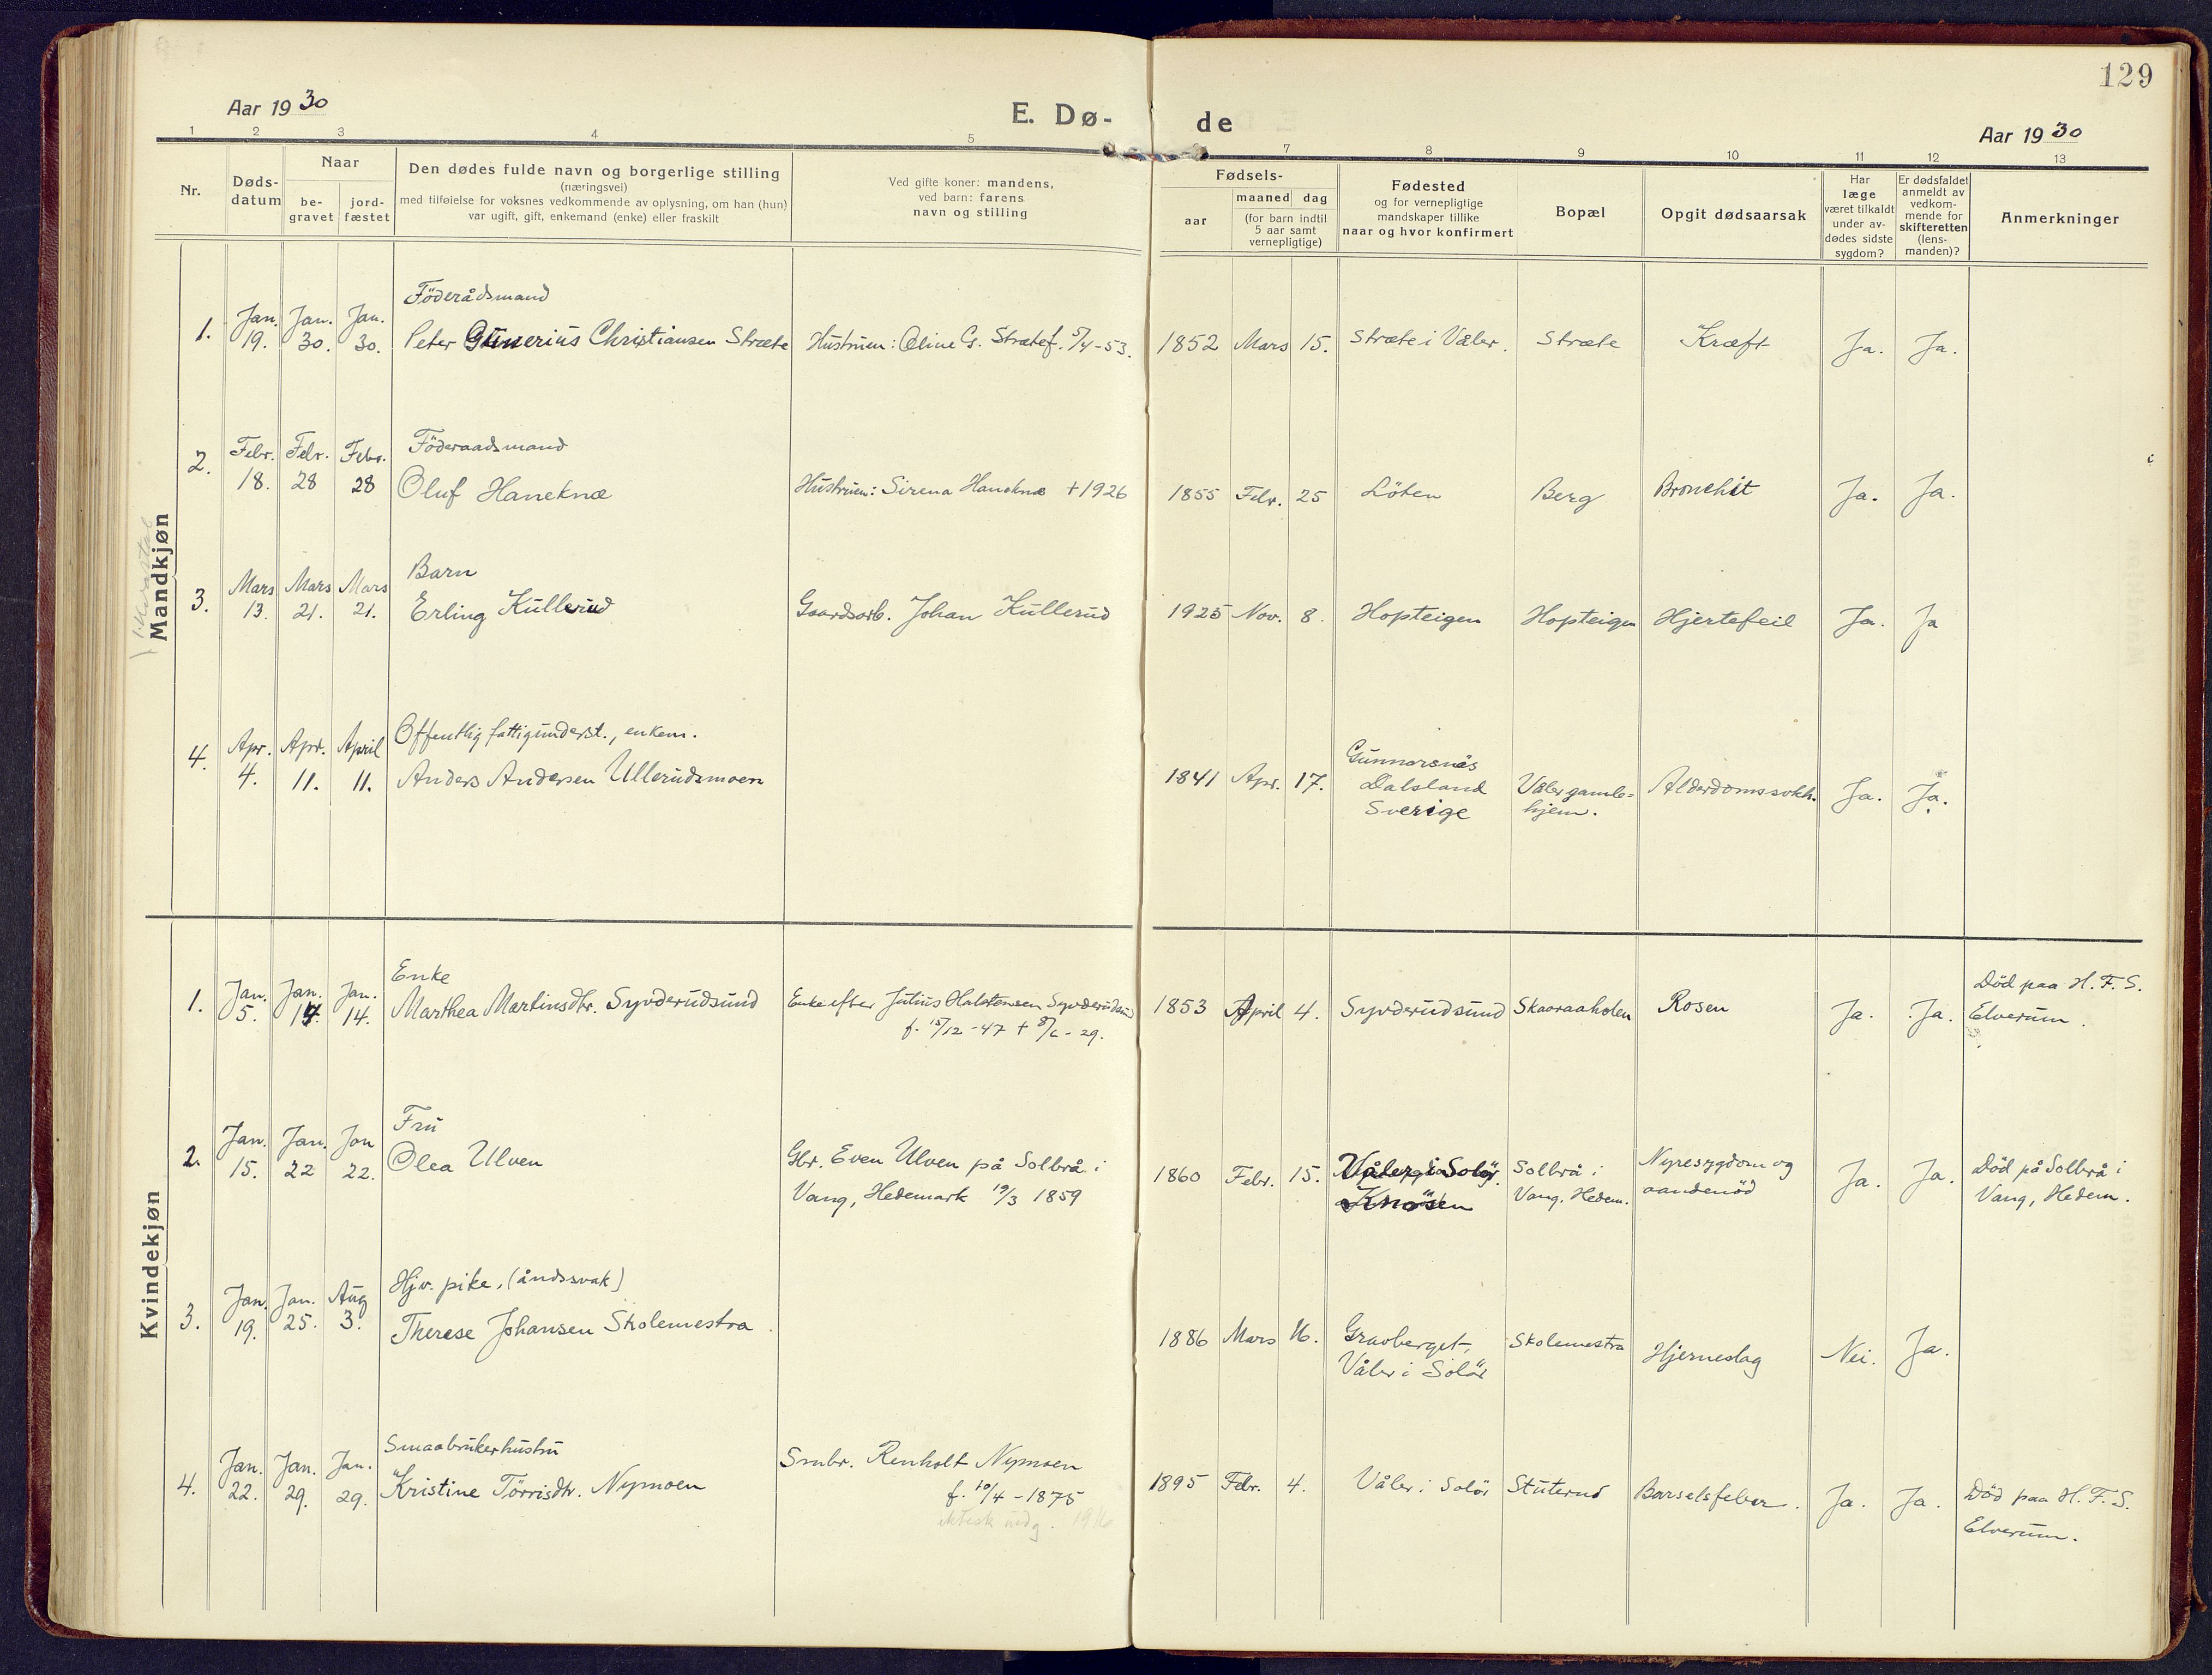 129
Aar 1930
E. Dø-
de
Aar 1930
1 2 3 4 5 7 8 9 10 11 12 13
Nr.
Døds-
datum
Naar
be-
gravet
jord-
fæstet
Den dødes fulde navn og borgerlige stilling
(næringsvei)
med tilføielse for voksnes vedkommende av oplysning, om han (hun)
var ugift, gift, enkemand (enke) eller fraskilt
Ved gifte koner: mandens,
ved barn: farens
navn og stilling
Fødsels-
aar
maaned dag
(for barn indtil
5 aar samt
vernepligtige)
Fødested
og for vernepligtige
mandskaper tillike
naar og hvor konfirmert
Bopæl
Opgit dødsaarsak
Har
læge
været tilkaldt
under av-
dødes sidste
sygdom?
Er dødsfaldet
anmeldt av
vedkom-
mende for
skifteretten
(lens-
manden)?
Anmerkninger
Mandkjøn
Föderådsmand
1. Jan. 19. Jan. 30. Jan. 30. Peter Gunerius Christiansen Stræte Hustruen: Oline G. Stræte f. 5/4-53. 1852 Mars 15. Stræte i Våler. Stræte Kræft Ja. Ja.
Föderaadsmand
2. Febr. 18. Febr. 28 Febr. 28 Oluf Haneknæ Hustruen: Sirena Haneknæ +1926 1855 Febr. 25 Löten Berg Bronchit Ja. Ja.
Barn
3. Mars 13. Mars 21. Mars 21. Erling Kullerud Gaardsarb. Johan Kullerud 1925 Nov. 8. Hopteigen Hopteigen Hjertefeil Ja. Ja
Offentlig fattigunderst., enkem.
4. Apr. 4. Apr. 11. April 11. Anders Andersen Ullerudsmoen 1841 Apr. 17. Gunnarsnäs
Dalsland
Sverige
Våler gamle-
hjem.
Alderdomssvkh. Ja. Ja.
Kvindekjøn
Enke
1. Jan. 5. Jan. 14. Jan. 14. Marthea Martinsdtr. Syvderudsund Enke efter Julius Halstensen Syvderudsund
f. 15/12-47 + 8/6-29.
1853 April 4. Syvderudsund Skaaraaholen Rosen Ja. Ja. Död paa H. F. S.
Elverum.
Fru
2. Jan. 15. Jan. 22 Jan 22. Olea Ulven Gbr. Even Ulven på Solbrå i
Vang, Hedemark 19/3 1859
1860 Febr. 15. Våler i Solör.
Knösen
Solbrå i
Vang. Hedem.
Nyresygdom og
aandenöd
Ja. Ja. Död på Solbrå i
Vang, Hedem.
Hjv. pike, (åndssvak)
3. Jan. 19. Jan. 25. Aug 3. Therese Johansen Skolemestra 1886 Mars 16. Gravberget,
Våler i Solör
Skolemestra Hjerneslag Nei. Ja.
Smaabrukerhustru
4. Jan. 22. Jan. 29. Jan. 29. Kristine Törrisdtr. Nymoen Smbr. Renholt Nymoen
f. 10/4-1875
1895 Febr. 4. Våler i Solör Stuterud Barselsfeber. Ja. Ja. Död paa H. F. S.
Elverum.